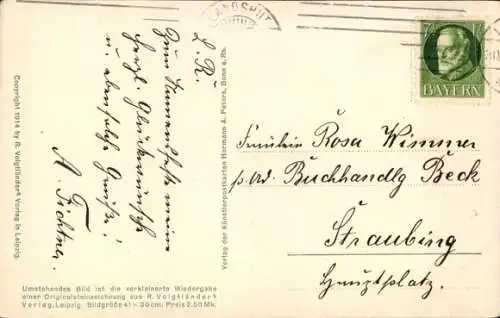 LANDSHUT
BAYERN
L. R.
Zum Namensfeste meine
herzl. Glückwünsche
u. ebensolche Grüße!
A. Fichtner
Fräulein Rosa Wimmer
p. Ad. Buchhandlg Beck
Straubing
Hauptplatz.
Copyright 1914 by R. Voigtländers Verlag in Leipzig.
Verlag der Künstlerpostkarten Hermann A. Peters, Bonn a. Rh.
Umstehendes Bild ist die verkleinerte Wiedergabe
einer Originalsteinzeichnung aus R. Voigtländers
Verlag, Leipzig. Bildgröße 41×30cm; Preis 2.50 Mk.